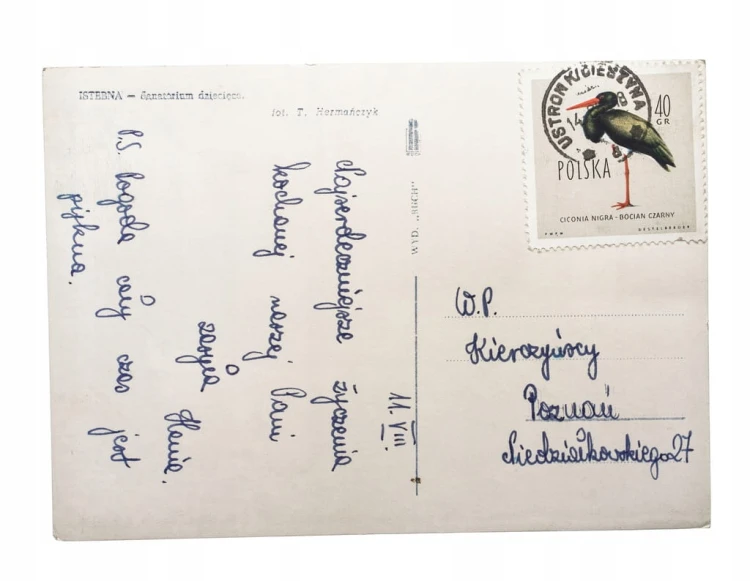 ISTEBNA — Sanatorium dziecięce.
fot. T. Hermańczyk
11. VIII.
Najserdeczniejsze życzenia
kochanej naszej Pani
zasyła
Henia.
P.S. Pogoda cały czas jest
piękna.
WYD. „RUCH"
USTROŃ K/CIESZYNA
40
GR
POLSKA
CICONIA NIGRA - BOCIAN CZARNY
W.P.
Kierczyńscy
Poznań
Niedziałkowskiego 27